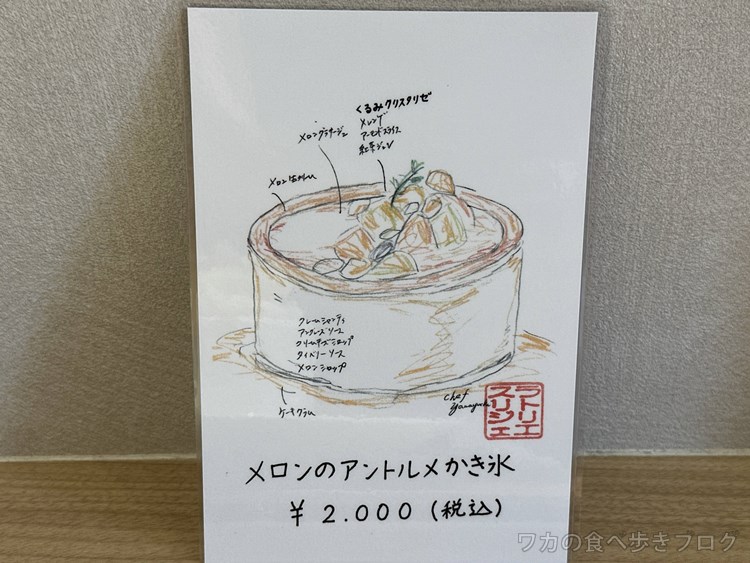 くるみクリスタリゼ
メレンゲ
アーモンドスライス
紅茶ジュレ
メロングラサージュ
メロン
クレームシャンティ
アングレーズソース
クリームチーズシロップ
ダイベリーソース
メロンシロップ
ケーキクラム
chef
ラトリエ
スリジェ
メロンのアントルメかき氷
¥ 2.000 (税込)
ワカの食べ歩きブログ